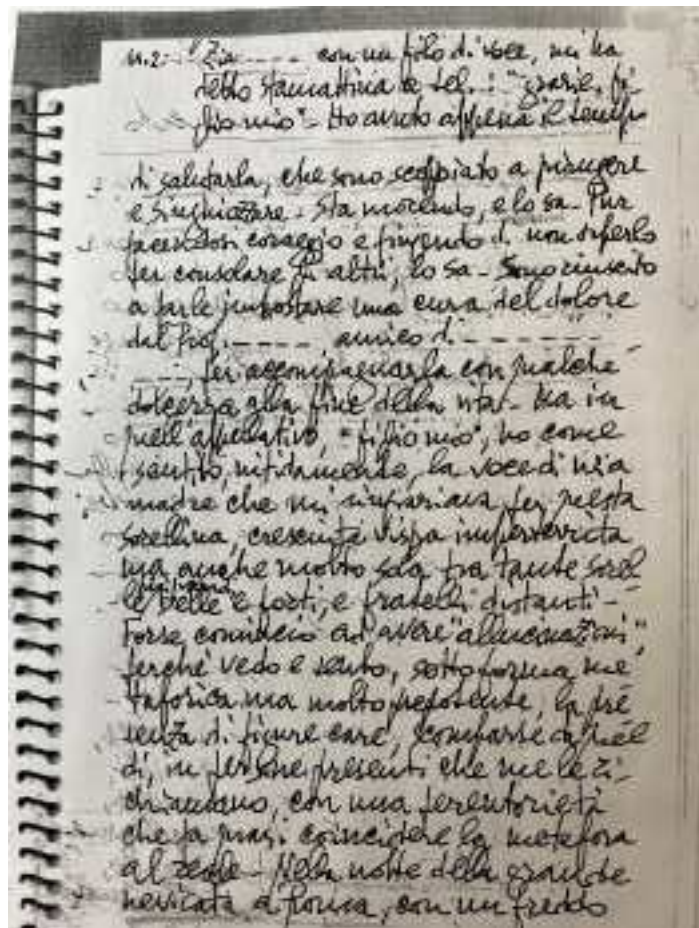 n.2: "Zia ---- con un filo di voce, mi ha
detto stamattina a tel.: "grazie, fi-
glio mio" - Ho avuto appena il tempo
di salutarla, che sono scoppiato a piangere
e singhiozzare - Sta morendo, e lo sa - Pur
facendosi coraggio e fingendo di non saperlo
per consolare gli altri, lo sa - Sono riuscito
a farle impostare una cura del dolore
dal prof. ---- amico di -------
----, per accompagnarla con qualche
dolcezza alla fine della vita - Ma in
quell'appellativo, "figlio mio", ho come
sentito, nitidamente, la voce di mia
madre che mi ringraziava per questa
sorellina, cresciuta vispa
ma anche molto sola tra tante sorel-
le belle e forti, e fratelli distanti -
Forse comincio ad avere "allucinazioni",
perché vedo e sento, sotto forma me-
taforica ma molto, la pre-
senza di figure care, scomparse
di, in persone presenti che me le ri-
chiamano, con una perentorietà
che fa quasi coincidere la metafora
al reale - Nella notte della grande
nevicata a, con un freddo